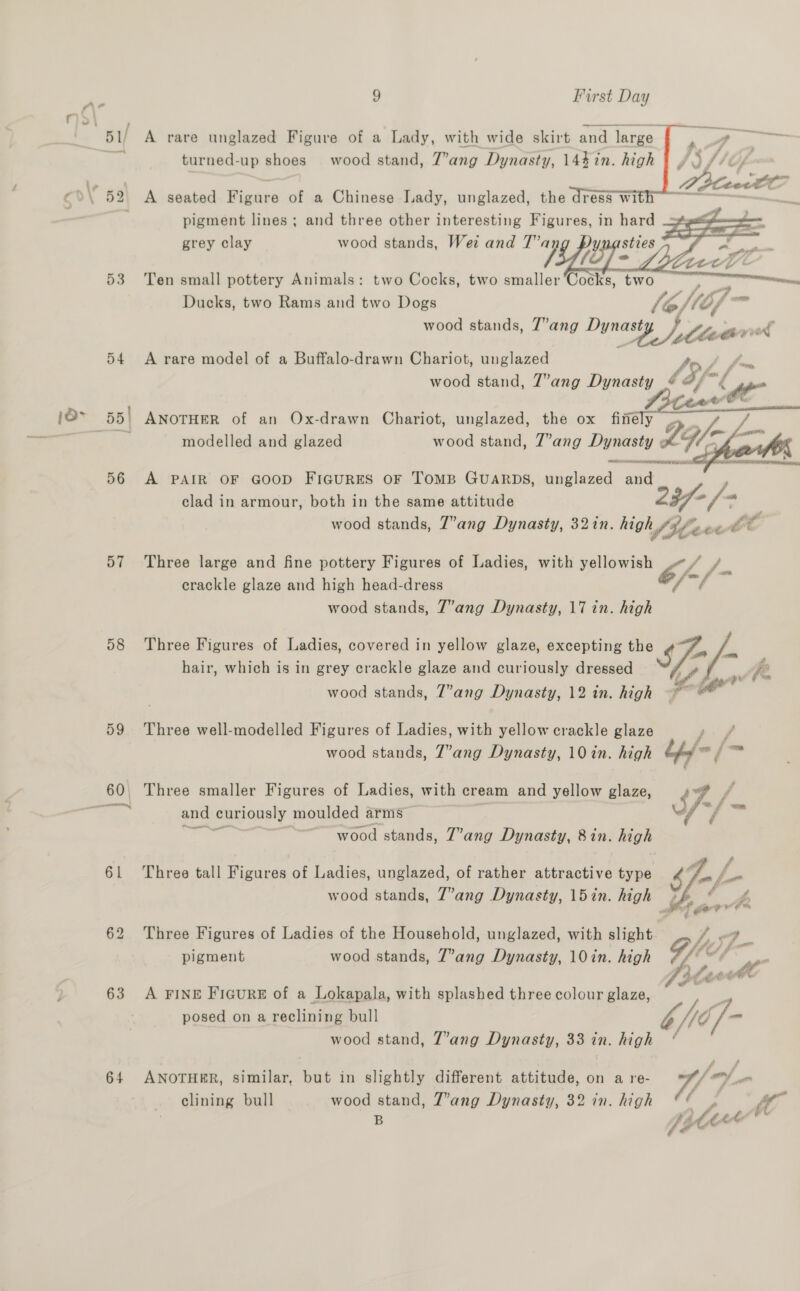 9 First Day
51 A rare unglazed Figure of a Lady, with wide skirt and large
turned-up shoes wood stand, T'ang Dynasty, 14½ in. high
52 A seated Figure of a Chinese Lady, unglazed, the dress with
pigment lines; and three other interesting Figures, in hard
grey clay wood stands, Wei and T'ang Dynasties
53 Ten small pottery Animals: two Cocks, two smaller Cocks, two
Ducks, two Rams and two Dogs
wood stands, T'ang Dynasty
54 A rare model of a Buffalo-drawn Chariot, unglazed
wood stand, T'ang Dynasty
55 ANOTHER of an Ox-drawn Chariot, unglazed, the ox finely
modelled and glazed wood stand, T'ang Dynasty
56 A PAIR OF GOOD FIGURES OF TOMB GUARDS, unglazed and
clad in armour, both in the same attitude
wood stands, T'ang Dynasty, 32 in. high
57 Three large and fine pottery Figures of Ladies, with yellowish
crackle glaze and high head-dress
wood stands, T'ang Dynasty, 17 in. high
58 Three Figures of Ladies, covered in yellow glaze, excepting the
hair, which is in grey crackle glaze and curiously dressed
wood stands, T'ang Dynasty, 12 in. high
59 Three well-modelled Figures of Ladies, with yellow crackle glaze
wood stands, T'ang Dynasty, 10 in. high
60 Three smaller Figures of Ladies, with cream and yellow glaze,
and curiously moulded arms
wood stands, T'ang Dynasty, 8 in. high
61 Three tall Figures of Ladies, unglazed, of rather attractive type
wood stands, T'ang Dynasty, 15 in. high
62 Three Figures of Ladies of the Household, unglazed, with slight
pigment wood stands, T'ang Dynasty, 10 in. high
63 A FINE FIGURE of a Lokapala, with splashed three colour glaze,
posed on a reclining bull 6/10/-
wood stand, T'ang Dynasty, 33 in. high
64 ANOTHER, similar, but in slightly different attitude, on a re-
clining bull wood stand, T'ang Dynasty, 32 in. high
B